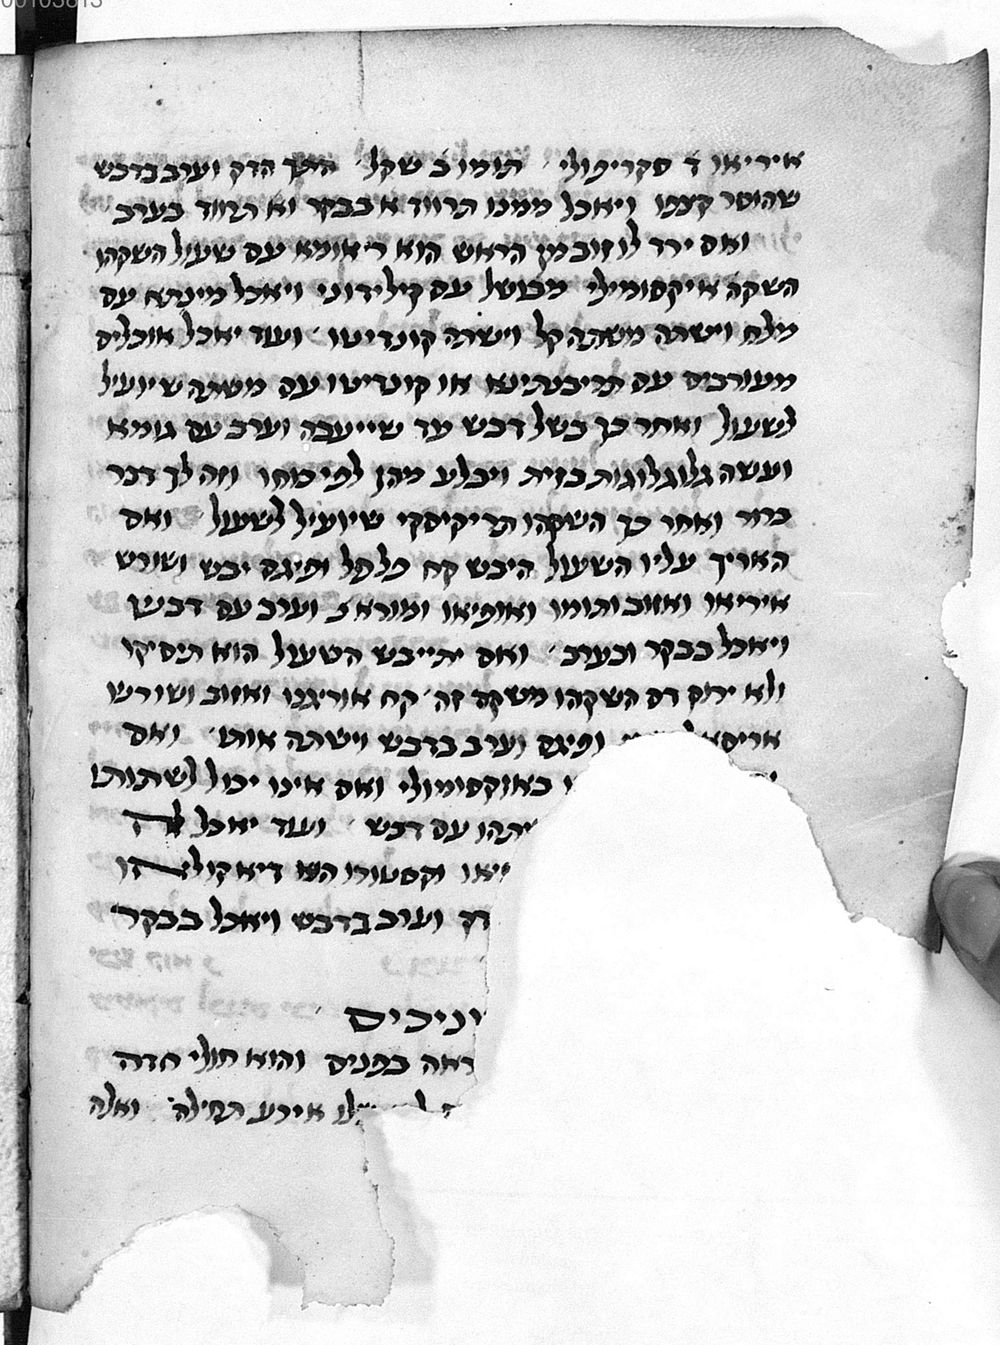 איריאו ד סקריפולי תומו ב שקל התך הדק וערב בדבש
שהוסר קצפו ויאכל ממנו תרווד א בבקר וא תרווד בערב
ואם ירד לו זוב מן הראש הוא ריאומא עם שעול השקהו
השקה איקסומילי מבושל עם קילידוני ויאכל מינתא עם
מלח וישתה משתה קל וישתה קונדיטו ועוד יאכל אוכלים
מעורבים עם תריבנתינא או קונדיטו עם משתה שיועיל
לשעול ואחר כך בשל דבש עד שייעבה וערב עם גומא
ועשה גלוגלוגות כזית ויבלע מהן לפי כוחו וזה לך דבר
ברור ואחר כך השקהו תריקיסקי שיועיל לשעול ואם
האריך עליו השעול היבש קח פלפל ופיגם יבש ושורש
איריאו ואזוב ותומו ואופיאו ומורא ב וערב עם דבש
ויאכל בבקר ובערב ואם יתייבש השעול הוא תיסיקו
ולא ירוק דם השקהו משקה זה קח אוריגנו ואזוב ושורש
ופיגם וערב בדבש וישתה אותו ואם
באוקסימולי ואם אינו יכול לשתותו
יתהו עם דבש ועוד יאכל
יאו וקסטורו הוא דיאקולי
דק וערב בדבש ויאכל בבקר
יניכים
ראה בפנים והוא חולי חדה
אירע תחילה ואלה